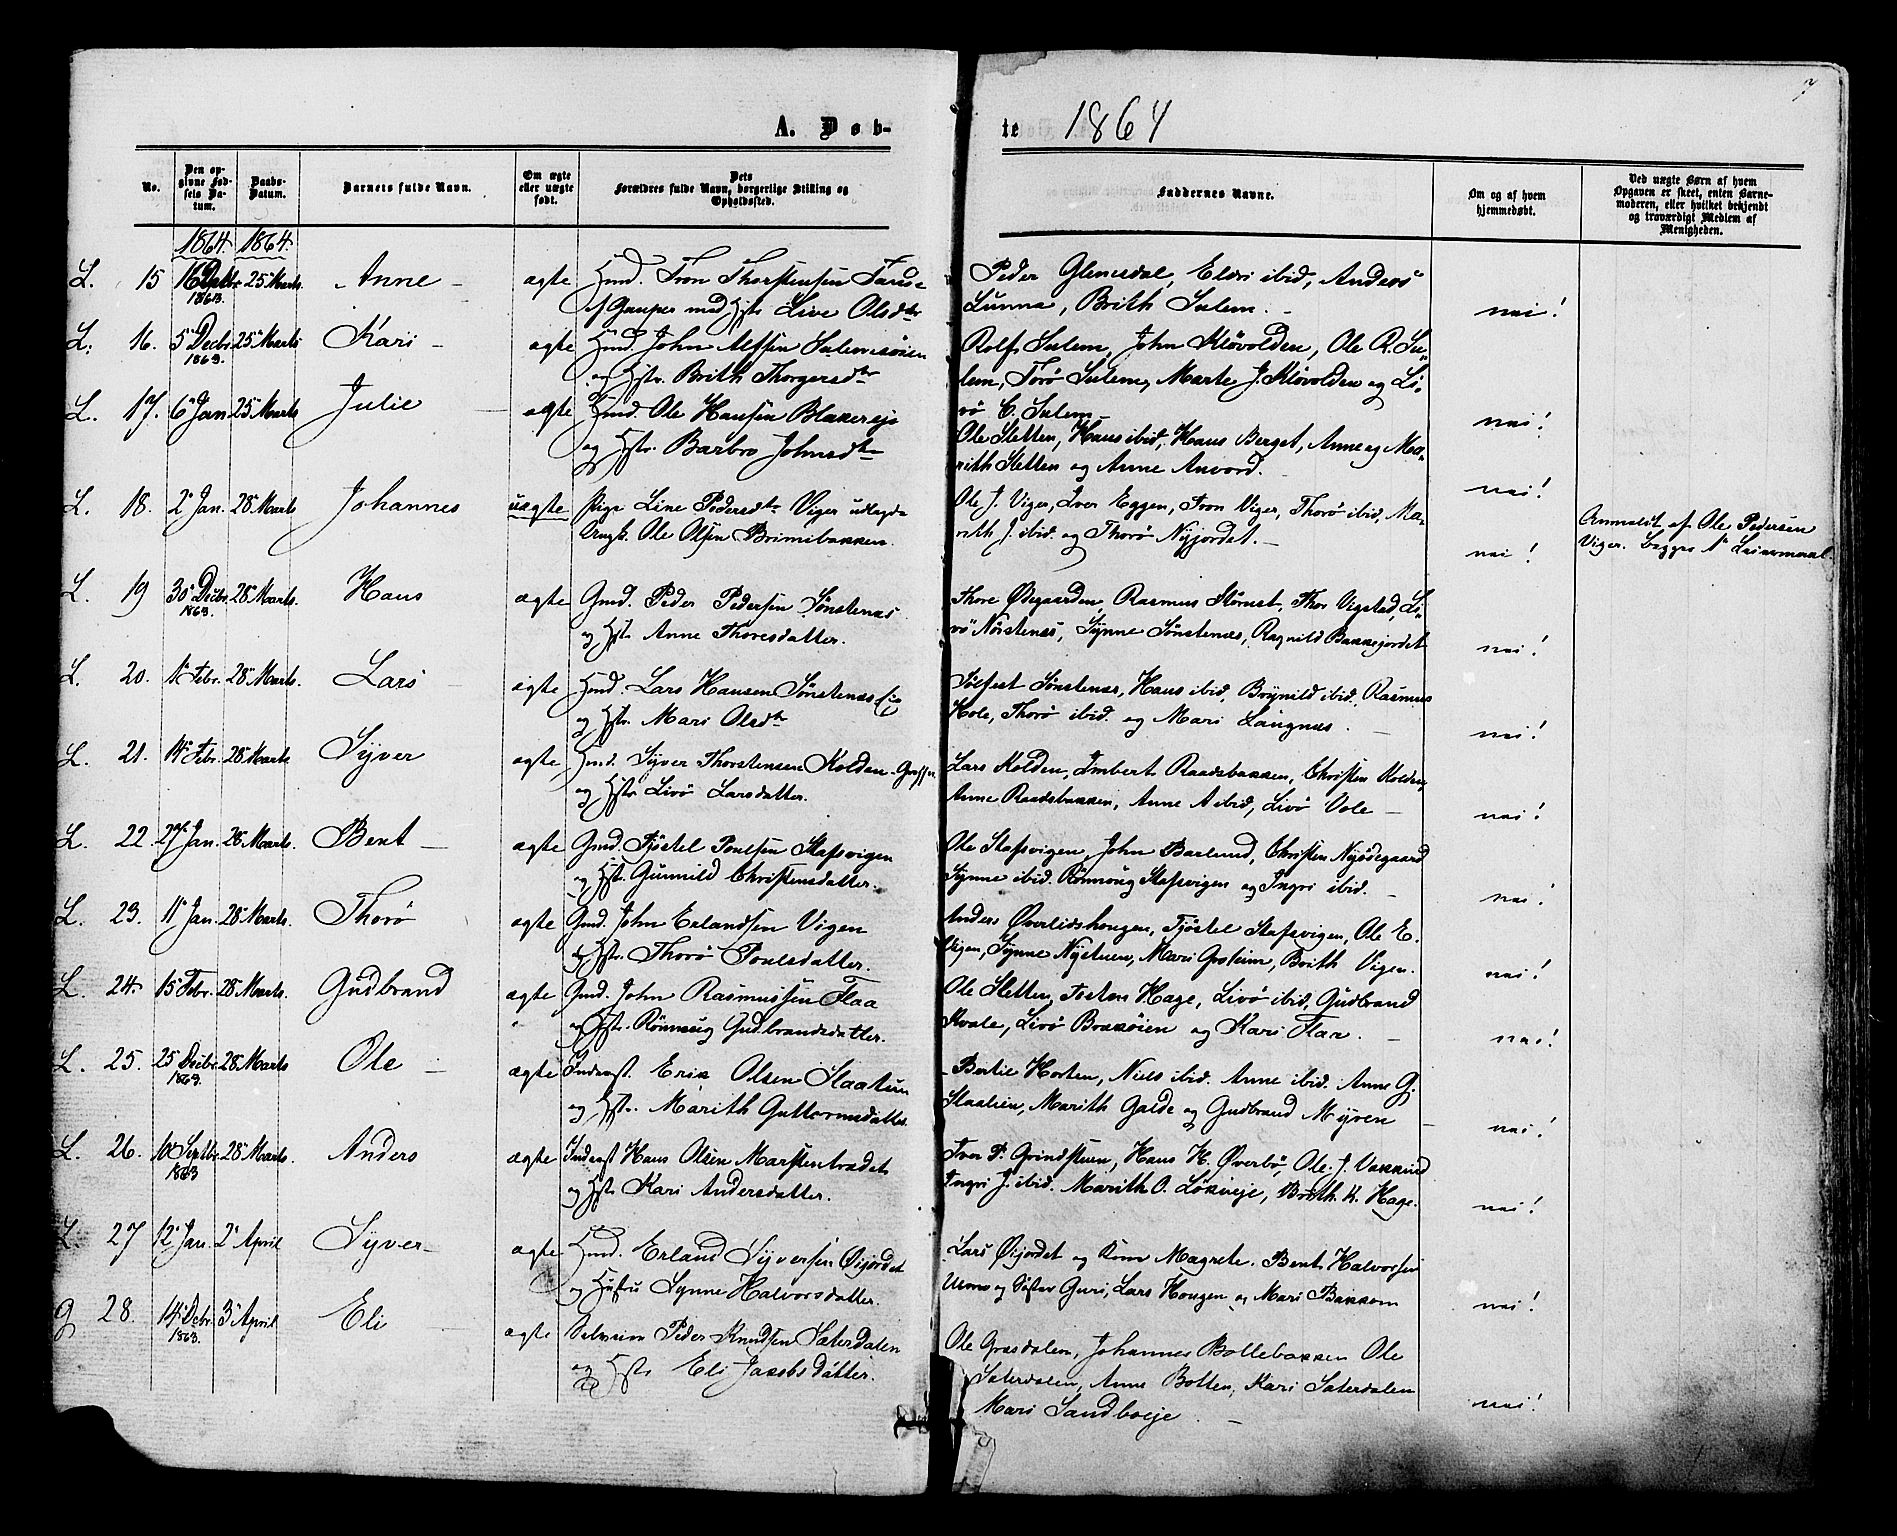 7
A. Døb-
te 1864
No.
Den op-
givne Fød-
sels Da-
tum.
Daabs-
Datum.
Barnets fulde Navn.
Om ægte
eller uægte
født.
Dets
Forældres fulde Navn, borgerlige Stilling og
Opholdssted.
Faddernes Navne.
Om og af hvem
hjemmedøbt.
Ved uægte Børn af hvem
Opgaven er skeet, enten Barne-
moderen, eller hvilket bekjendt
og troværdigt Medlem af
Menigheden.
1864. 1864.
L. 15 25 Marts Anne - ægte Hmd. Tron Thorstensen
1863. med Hst. Live Olsdtr
Peder Glemsdal, Eldri ibid, Anders
Sunna, Brith Sulem. - nei!
L. 16. 5 Decbr 25 Marts Kari - ægte Hmd. John Alfsen
1863. og Hst. Brith Thorgersdtr
Rolf Sulem, John Kløvolden, Ole R. Su-
lem, Torø Sulem, Marte J. Kløvolden og Li-
vø C. Sulem - nei!
L. 17. 6 Jan. 25 Marts Julie - ægte Hmd. Ole Hansen Blakereje
og Hst. Barbro Johnsdtr
Ole Sletten, Hans ibid, Hans Berget, Anne og Ma-
rith Sletten og Anne Anvord. nei!
L. 18. 2 Jan. 28 Marts Johannes uægte Pige Line Pedersdtr Viger udlagde
Ungk. Ole Olsen Brimibakken.
Ole J. Viger, Iver Eggen, Tron Viger, Thorø ibid, Ma-
rith J. ibid. og Thorø Nyjordet. - nei!
Anmeldt af Ole Pedersen
Viger. Begges 1ste Leiermaal
L. 19 30 Decbr. 28 Marts. Hans ægte Gmd. Peder Pedersen Sønstenæs
1863. og Hst. Anne Thoresdatter.
Thore Ødegaarden, Rasmus Stornæt, Thor Vigstad, Li-
vø Norstenæs, Synne Sønstenæs, Ragnild Bakkejordet nei!
L. 20. 1 Febr. 28 Marts. Lars ægte Hmd. Lars Hansen Sønstenæs Eie
og Hst. Mari Olsdtr
Sølfest Sønstenæs, Hans ibid, Brynild ibid, Rasmus
Hole, Thorø ibid. og Mari Langnæs. - nei!
L. 21. 14 Febr. 28 Marts Syver ægte Hmd. Syver Thorstensen Kolden
og Hst Livø Larsdatter.
Lars Kolden, Imbert Raadsbakken, Christen Kolden,
Anne Raadsbakken, Anne A ibid, Livø Vole - nei!
L. 22. 27 Jan. 28 Marts. Bent - ægte Gmd. Tjøstel Poulsen Stafsvigen
og Hst. Gunnild Christensdatter.
Ole Stafsvigen, John Barlund, Christen Nyødegaard
Synne ibid. Rønnoug Stafsvigen og Ingri ibid. - nei!
L. 23. 11 Jan. 28 Marts. Thorø ægte Gmd. John Erlandsen Vigen
og Hst. Thorø Poulsdatter.
Anders Øverlidshougen, Tjøstel Stafsvigen, Ole E.
Vigen, Synne Nystuen, Mari Gröleim, Brith Vigen. nei!
L. 24. 15 Febr. 28 Marts. Gudbrand ægte Gmd. John Rasmussen Flaa
og Hst. Rønnoug Gudbrandsdatter.
Ole Sletten, Tosten Hage, Livø ibid, Gudbrand
Kvale, Livø Brakøien og Kari Flaa. - nei!
L. 25. 25 Decbr. 28 Marts Ole - ægte Inderst. Erik Olsen Slaatun
1863. og Hst. Marith Guttormsdatter
Bertil Horten, Niels ibid. Anne ibid. Anne G.
Slaalien, Marith Galde og Gudbrand Myren - nei!
L. 26. 10 Septbr. 28 Marts. Anders ægte Inderst Hans Olsen Marstentrædet
1863 og Hst. Kari Andersdatter.
Iver P. Grindstuen, Hans H. Øverbø, Ole J.
Ingri J. ibid. Marith O. Løkreje, Brith H. Hage. nei!
L. 27 12 Jan. 2 April Syver - ægte Hmd. Erland Syversen Øijordet
og Hustru Synne Halvorsdatter.
Lars Øijordet og Kone Magrete. Bent Halvorsen
og Søster Guri, Lars Hougen og Mari Bakkom nei!
G 28. 14 Decbr. 3 April Eli ægte Selveier Peder Knudsen Sæterdalen
1863. og Hst. Eli Jacobsdatter.
Ole Græsdalen, Johannes Bollebakken Ole
Sæterdalen, Anne Botten, Kari Sæterdalen
Mari Sandboeje. - nei!